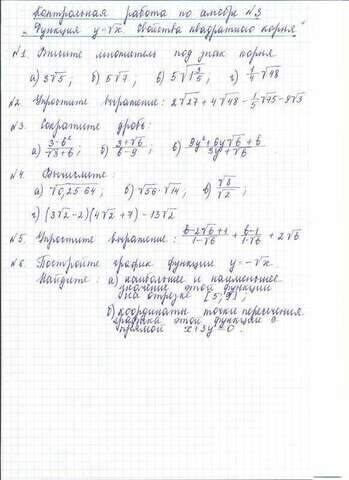 Контрольная работа по алгебре №3
"Функция y=√x. Свойства квадратного корня"
№1. Внесите множитель под знак корня
а) 3√5; б) 5√7; в) 5√1 3/5; г) 1/4 √48
№2. Упростите выражение: 2√27 + 4√48 - 1/5 √75 - 8√3
№3. Сократите дробь:
а) (3-b²)/(√3+b); б) (3+√b)/(b-9); в) (9y²+6y√b+b)/(3y+√b)
№4. Вычислите:
а) √0,25·64; б) √56·√14; в) √8/√2;
г) (3√2-2)(4√2+7) - 13√2
№5. Упростите выражение: (b-2√b+1)/(1-√b) + (b-1)/(1-√b) + 2√b
№6. Постройте график функции y=-√x.
Найдите: а) наибольшее и наименьшее
значение этой функции
на отрезке [5;9];
б) координаты точки пересечения
графика этой функции с
прямой x+3y=0.